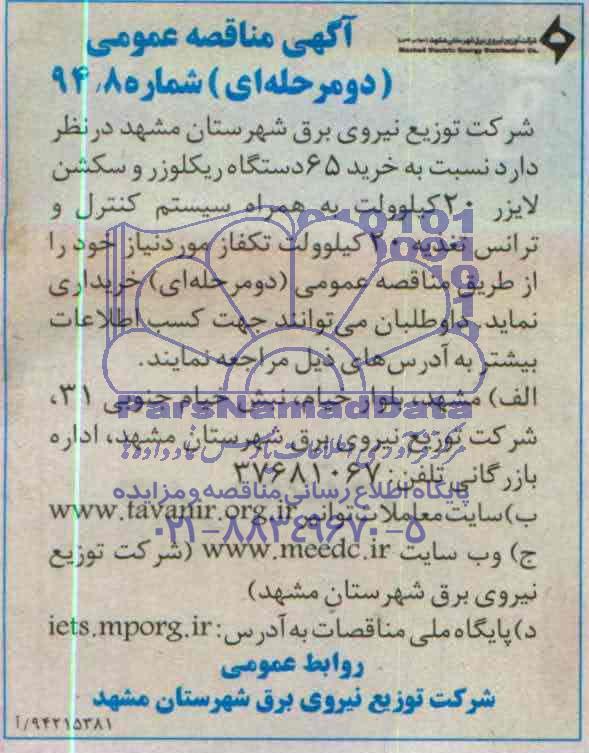 شرکت توزیع نیروی برق شهرستان مشهد
Mashad Electric Energy Distribution Co.
آگهی مناقصه عمومی
(دومرحله‌ای) شماره ۹۴٫۸
شرکت توزیع نیروی برق شهرستان مشهد در نظر
دارد نسبت به خرید ۶۵ دستگاه ریکلوزر و سکشن
لایزر ۲۰ کیلوولت به همراه سیستم کنترل و
ترانس تغذیه ۲۰ کیلوولت تکفاز موردنیاز خود را
از طریق مناقصه عمومی (دومرحله‌ای) خریداری
نماید. داوطلبان می‌توانند جهت کسب اطلاعات
بیشتر به آدرس‌های ذیل مراجعه نمایند.
الف) مشهد، بلوار خیام، نبش خیام جنوبی ۳۱،
ParsNamadData
شرکت توزیع نیروی برق شهرستان مشهد، اداره
بازرگانی تلفن: ۳۷۶۸۱۰۶۷
پایگاه اطلاع رسانی مناقصه و مزایده
ب) سایت معاملات توانیر www.tavanir.org.ir
۰۲۱-۸۸۳۴۹۶۷۰-۵
ج) وب سایت www.meedc.ir (شرکت توزیع
نیروی برق شهرستان مشهد)
د) پایگاه ملی مناقصات به آدرس: iets.mporg.ir
روابط عمومی
شرکت توزیع نیروی برق شهرستان مشهد
۹۴۲۱۵۳۸۱/آ